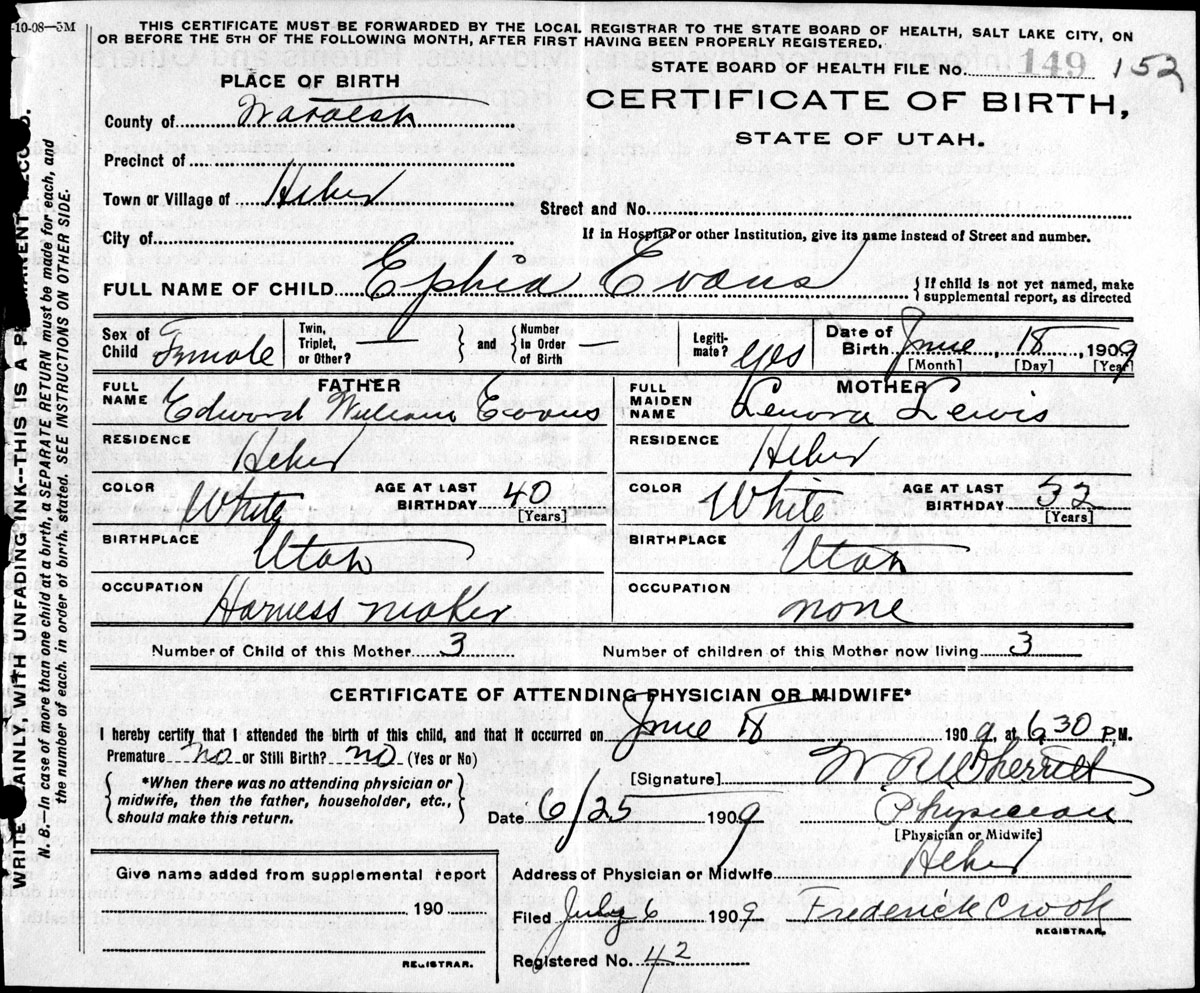 -10-08—5M
THIS CERTIFICATE MUST BE FORWARDED BY THE LOCAL REGISTRAR TO THE STATE BOARD OF HEALTH, SALT LAKE CITY, ON
OR BEFORE THE 5TH OF THE FOLLOWING MONTH, AFTER FIRST HAVING BEEN PROPERLY REGISTERED.
PLACE OF BIRTH
STATE BOARD OF HEALTH FILE NO. 149 152
CERTIFICATE OF BIRTH,
STATE OF UTAH.
County of Wasatch
Precinct of
Town or Village of Heber
Street and No.
City of
If in Hospital or other Institution, give its name instead of Street and number.
FULL NAME OF CHILD Ephia Evans
If child is not yet named, make
supplemental report, as directed
Sex of Child Female
Twin, Triplet, or Other? —
and
Number In Order of Birth —
Legiti-mate? Yes
Date of Birth June 18, 1909
[Month] [Day] [Year]
FATHER
FULL NAME Edward William Evans
MOTHER
FULL MAIDEN NAME Lenora Lewis
RESIDENCE Heber
RESIDENCE Heber
COLOR White
AGE AT LAST BIRTHDAY 40
[Years]
COLOR White
AGE AT LAST BIRTHDAY
[Years]
BIRTHPLACE Utah
BIRTHPLACE Utah
OCCUPATION Harness maker
OCCUPATION none
Number of Child of this Mother 3
Number of children of this Mother now living 3
CERTIFICATE OF ATTENDING PHYSICIAN OR MIDWIFE*
I hereby certify that I attended the birth of this child, and that it occurred on June 18 1909, at 6 30 P.M.
Premature no or Still Birth? no (Yes or No)
*When there was no attending physician or
midwife, then the father, householder, etc.,
should make this return.
[Signature] W R Wherritt
Date 6/25 1909
Physician
[Physician or Midwife]
Address of Physician or Midwife Heber
Give name added from supplemental report
190
REGISTRAR.
Filed July 6 1909 Frederick Crook
REGISTRAR.
Registered No. 42
WRITE PLAINLY, WITH UNFADING INK--THIS IS A PERMANENT RECORD.
N. B.—In case of more than one child at a birth, a SEPARATE RETURN must be made for each, and
the number of each, in order of birth, stated. SEE INSTRUCTIONS ON OTHER SIDE.